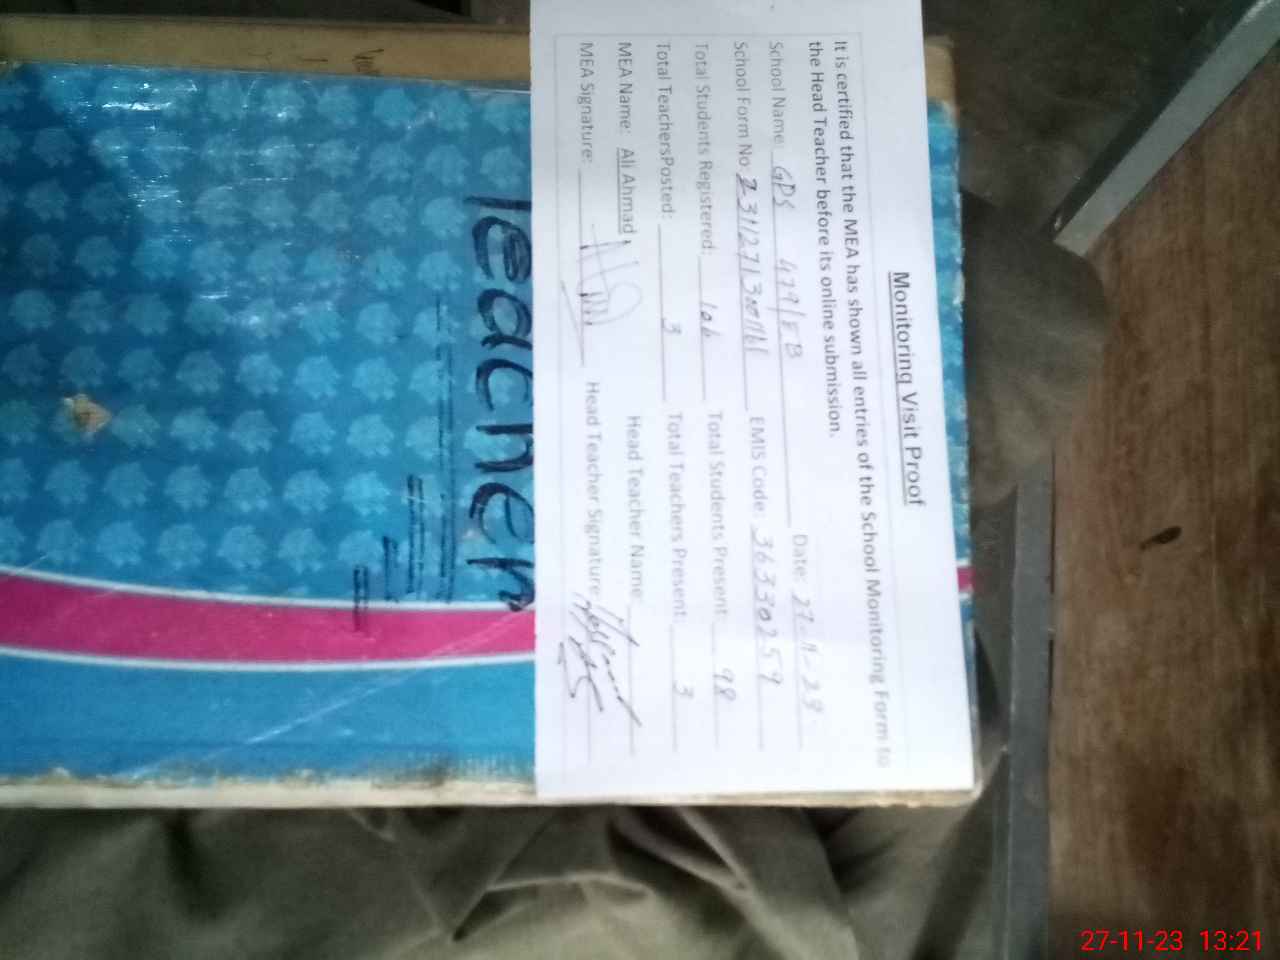 Monitoring Visit Proof
It is certified that the MEA has shown all entries of the School Monitoring Form to
the Head Teacher before its online submission.
School Name: GPS 479/EB Date: 27-11-23
School Form No: EMIS Code: 36330259
Total Students Registered: 106 Total Students Present: 98
Total TeachersPosted: 3 Total Teachers Present: 3
MEA Name: Ali Ahmad Head Teacher Name:
MEA Signature: Head Teacher Signature:
Teacher
27-11-23 13:21